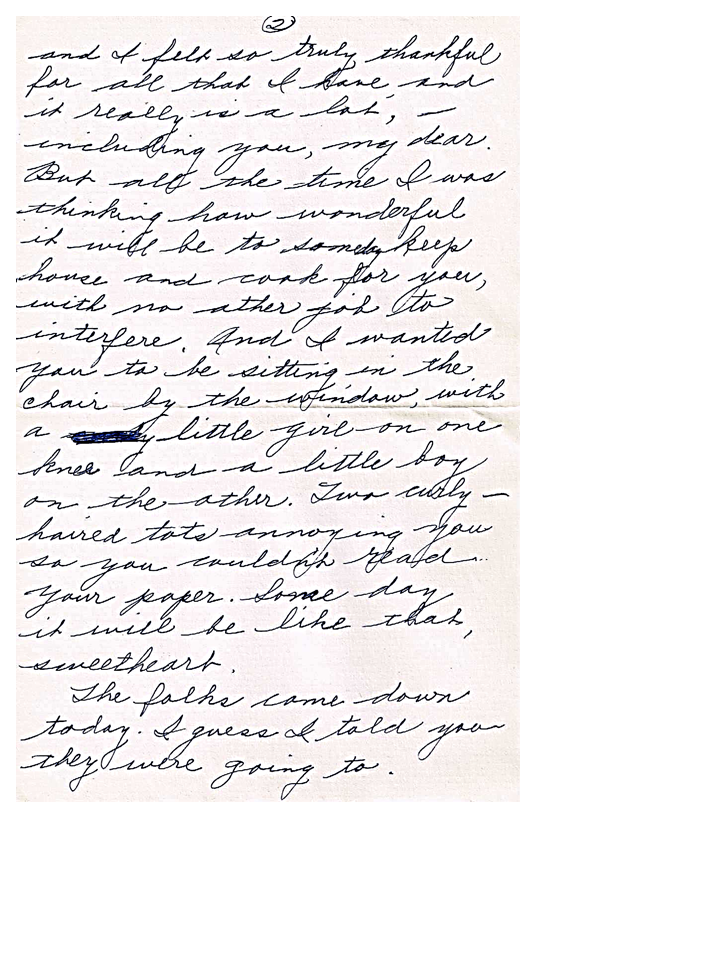 (2)
and I felt so truly thankful
for all that I have, and
it really is a lot, –
including you, my dear.
But all the time I was
thinking how wonderful
it will be to someday keep
house and cook for you,
with no other job to
interfere. And I wanted
you to be sitting in the
chair by the window, with
a little girl on one
knee and a little boy
on the other. Two curly –
haired tots annoying you
so you couldn't read
your paper. Some day
it will be like that,
sweetheart.
The folks came down
today. I guess I told you
they were going to.